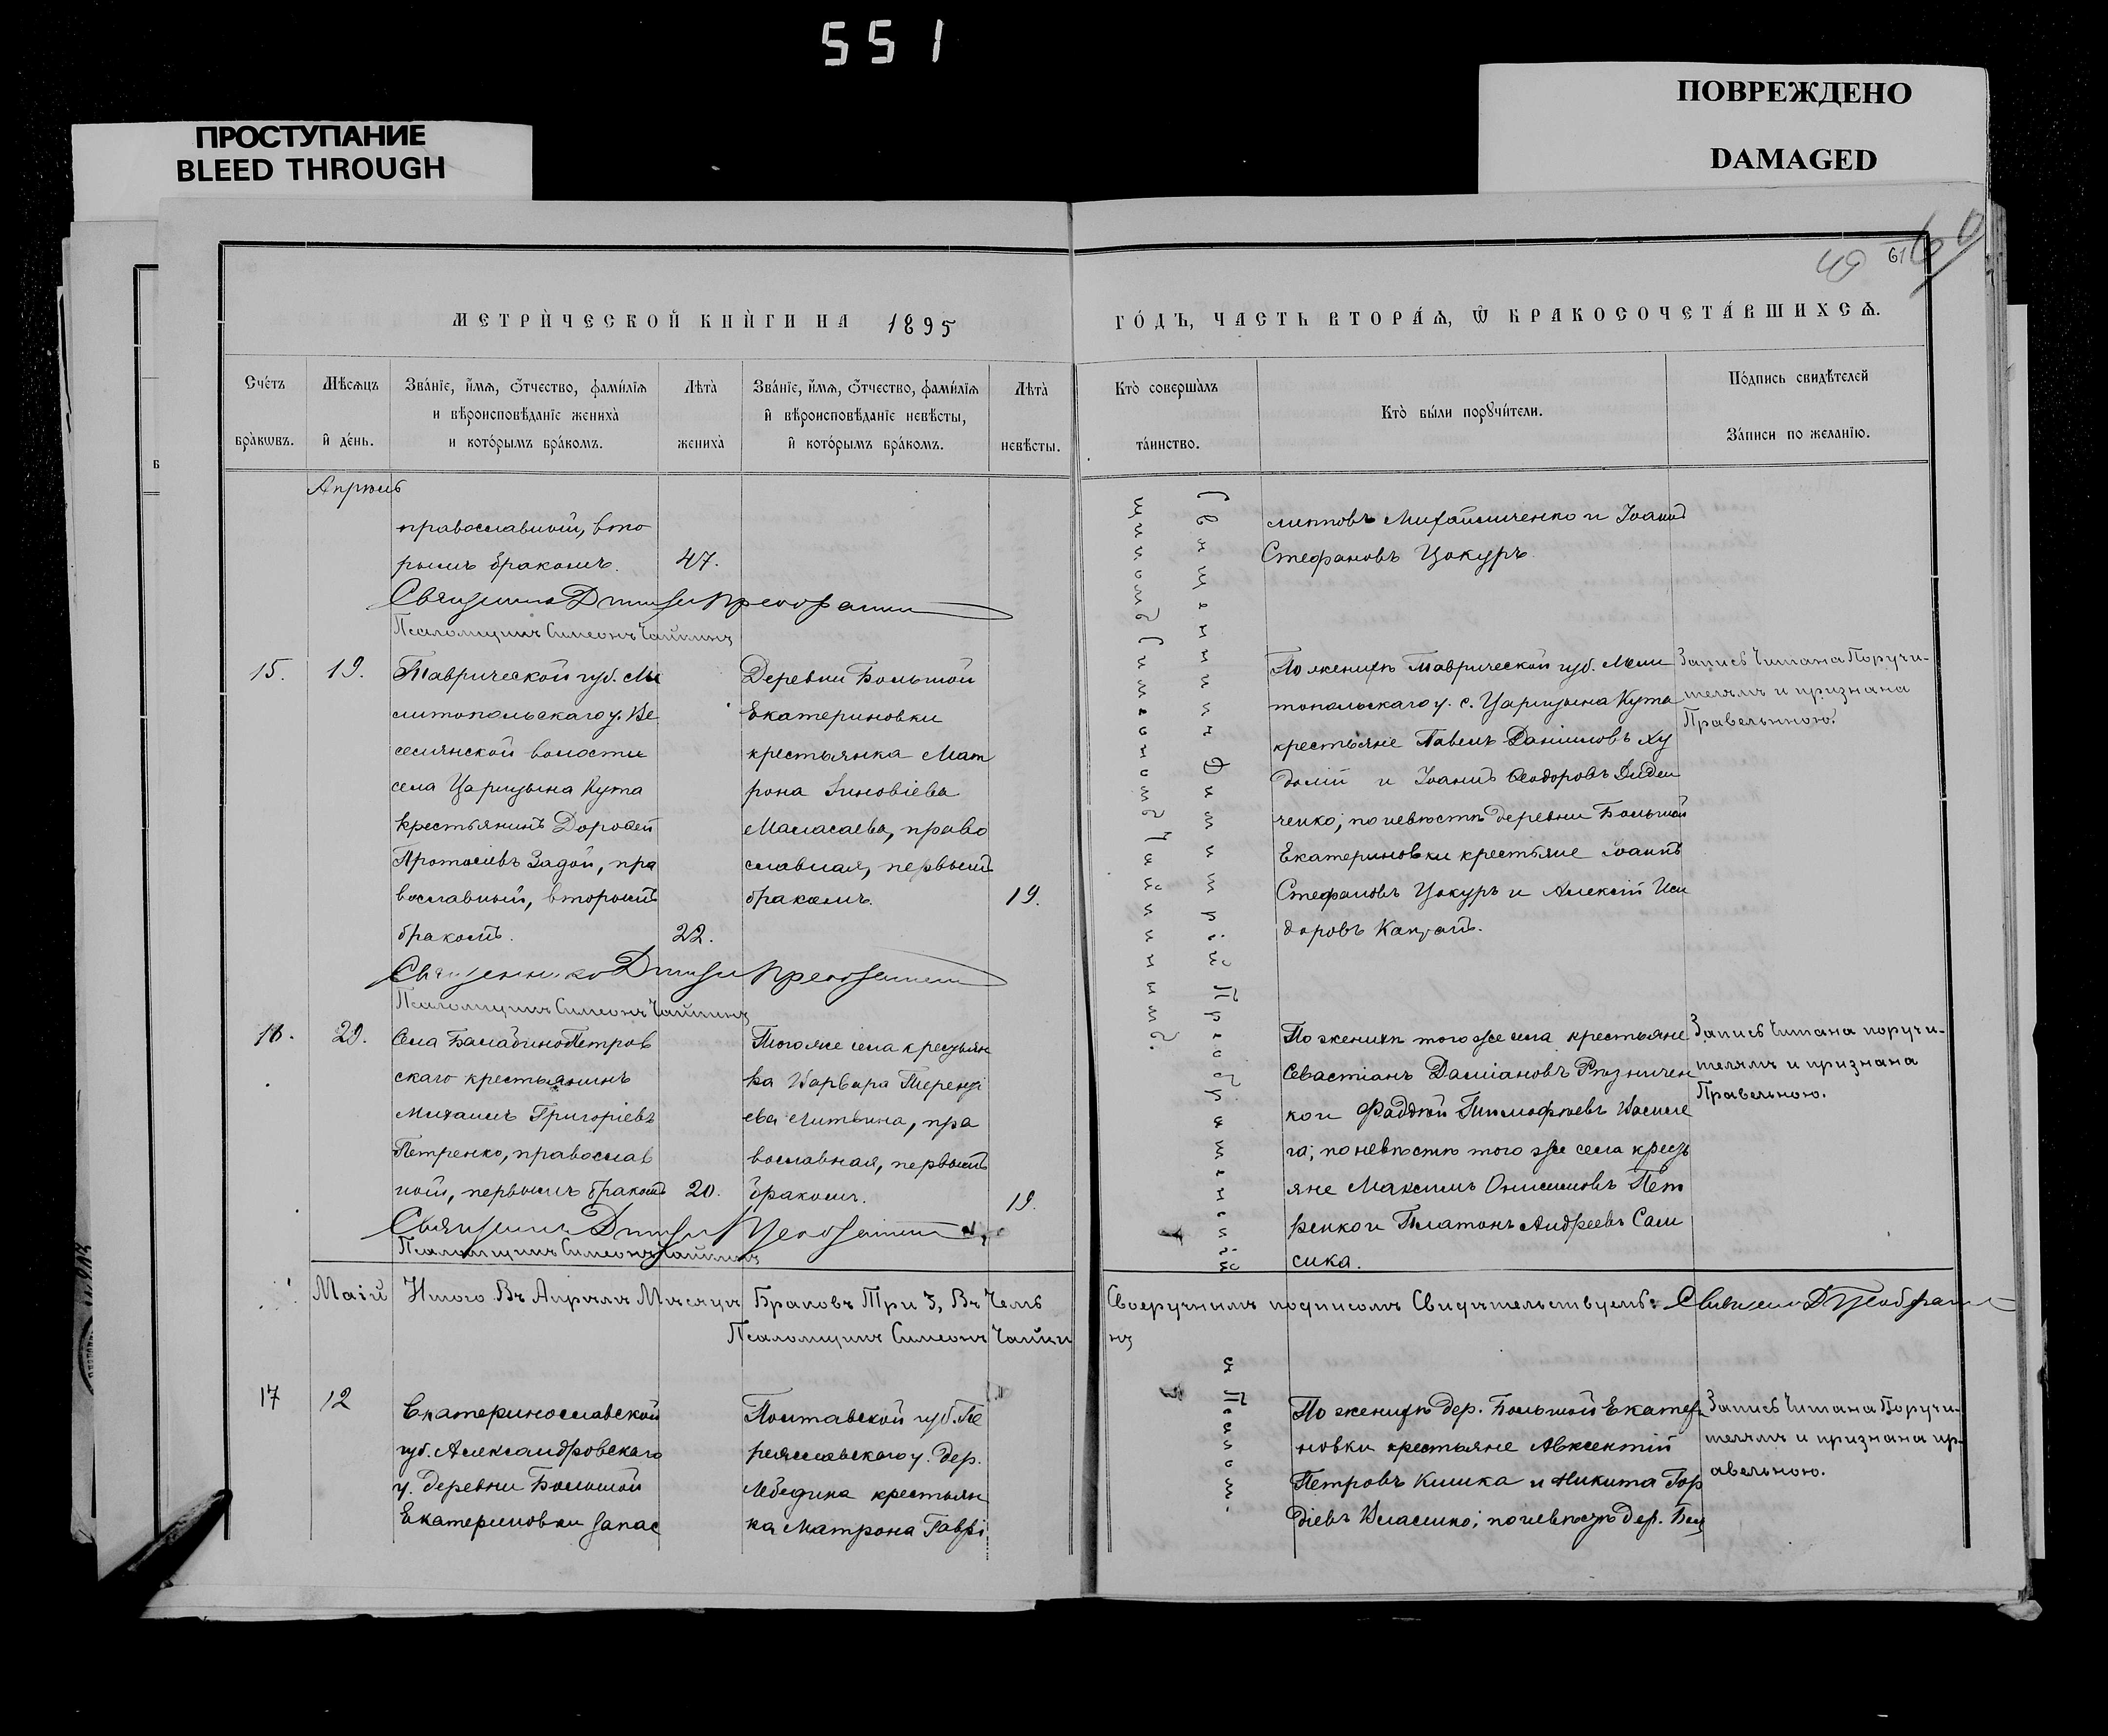 551
ПРОСТУПАНИЕ
BLEED THROUGH
ПОВРЕЖДЕНО
DAMAGED
49 61 60
МЕТРИ́ЧЕСКОЙ КНИ́ГИ НА 1895
ГО́ДЪ, ЧАСТЬ ВТОРА́Ѧ, Ѽ БРАКОСОЧЕТА́ВШИХСѦ.
Сче́тъ бра̀кѡвъ.
Мѣ́сѧцъ и҆ де́нь.
Зва́нїе, и҆́мѧ, ѻ҆́тчество, фами́лїѧ
и вѣроисповѣ́данїе жениха̀
и кото́рымъ бра́комъ.
Лѣта̀ жениха̀
Зва́нїе, и҆́мѧ, ѻ҆́тчество, фами́лїѧ
и҆ вѣроисповѣ́данїе невѣ́сты,
и҆ кото́рымъ бра́комъ.
Лѣта̀ невѣ́сты.
Кто̀ соверша́лъ та́инство.
Кто̀ бы́ли порꙋчи́тели.
По́дпись свидѣ́телей
За́писи по жела́нїю.
Апрѣль
православный, вто
рымъ бракомъ. 47.
Псаломщикъ Симеонъ Чайкинъ
15. 19.
Таврической губ. Ме
литопольскаго у. Ве
селянской волости
села Царицына Кута
крестьянинъ Дороѳей
Протасіевъ Задой, пра
вославный, вторымъ
бракомъ. 22.
Деревни Большой
Екатериновки
крестьянка Мат
рона Зиновіева
Маласаева, право
славная, первымъ
бракомъ. 19.
Псаломщикъ Симеонъ Чайкинъ
16. 29.
Села БалабиноПетров
скаго крестьянинъ
Михаилъ Григоріевъ
Петренко, православ
ный, первымъ бракомъ 20.
Того же села крестьян
ка Варвара Теренті
ева Литвина, пра
вославная, первымъ
бракомъ. 19.
Псаломщикъ Симеонъ Чайкинъ
Маій Итого Въ Апрѣлѣ Мѣсяцѣ Браковъ Три 3, Въ Чемъ
Псаломщикъ Симеонъ Чайки
17 12
Екатеринославской
губ. Александровскаго
у. деревни Большой
Екатериновки запас
Полтавской губ. Пе
реяславскаго у. дер.
Лебедина крестьян
ка Матрона Гаврі
Священникъ Димитрій Преображенскій
Псаломщикъ Симеонъ Чайкинъ.
липповъ Михайличенко и Іоаннъ
Стефановъ Цокуръ.
По женихѣ Таврической губ. Мели
топольскаго у. с. Царицына Кута
крестьяне Павелъ Даніиловъ Ху
долій и Іоаннъ Ѳеодоровъ Диден
ченко; по невѣстѣ деревни Большой
Екатериновки крестьяне Іоаннъ
Стефановъ Цокуръ и Алексій Иси
доровъ
Запись Читана Поручи-
телямъ и признана
Правельнною.
По женихѣ того же села крестьяне
Севастіанъ Даміановъ Рѣзничен
ко и Фаддей Тимофѣевъ Василе
га; по невѣстѣ того же села кресть
яне Максимъ Онисимовъ Пет
ренко и Платонъ Андреевъ Сам
сика.
Запись Читана поручи-
телямъ и признана
Правельною.
Своеручнымъ подписомъ Свидѣтельствуемъ:
нъ
По женихѣ дер. Большой Екатер
новки крестьяне Авксентій
Петровъ Кишка и Никита Гор
діевъ Власенко; по невѣстѣ дер. Бол
Запись Читана Поручи-
телямъ и признана пр-
авельною.